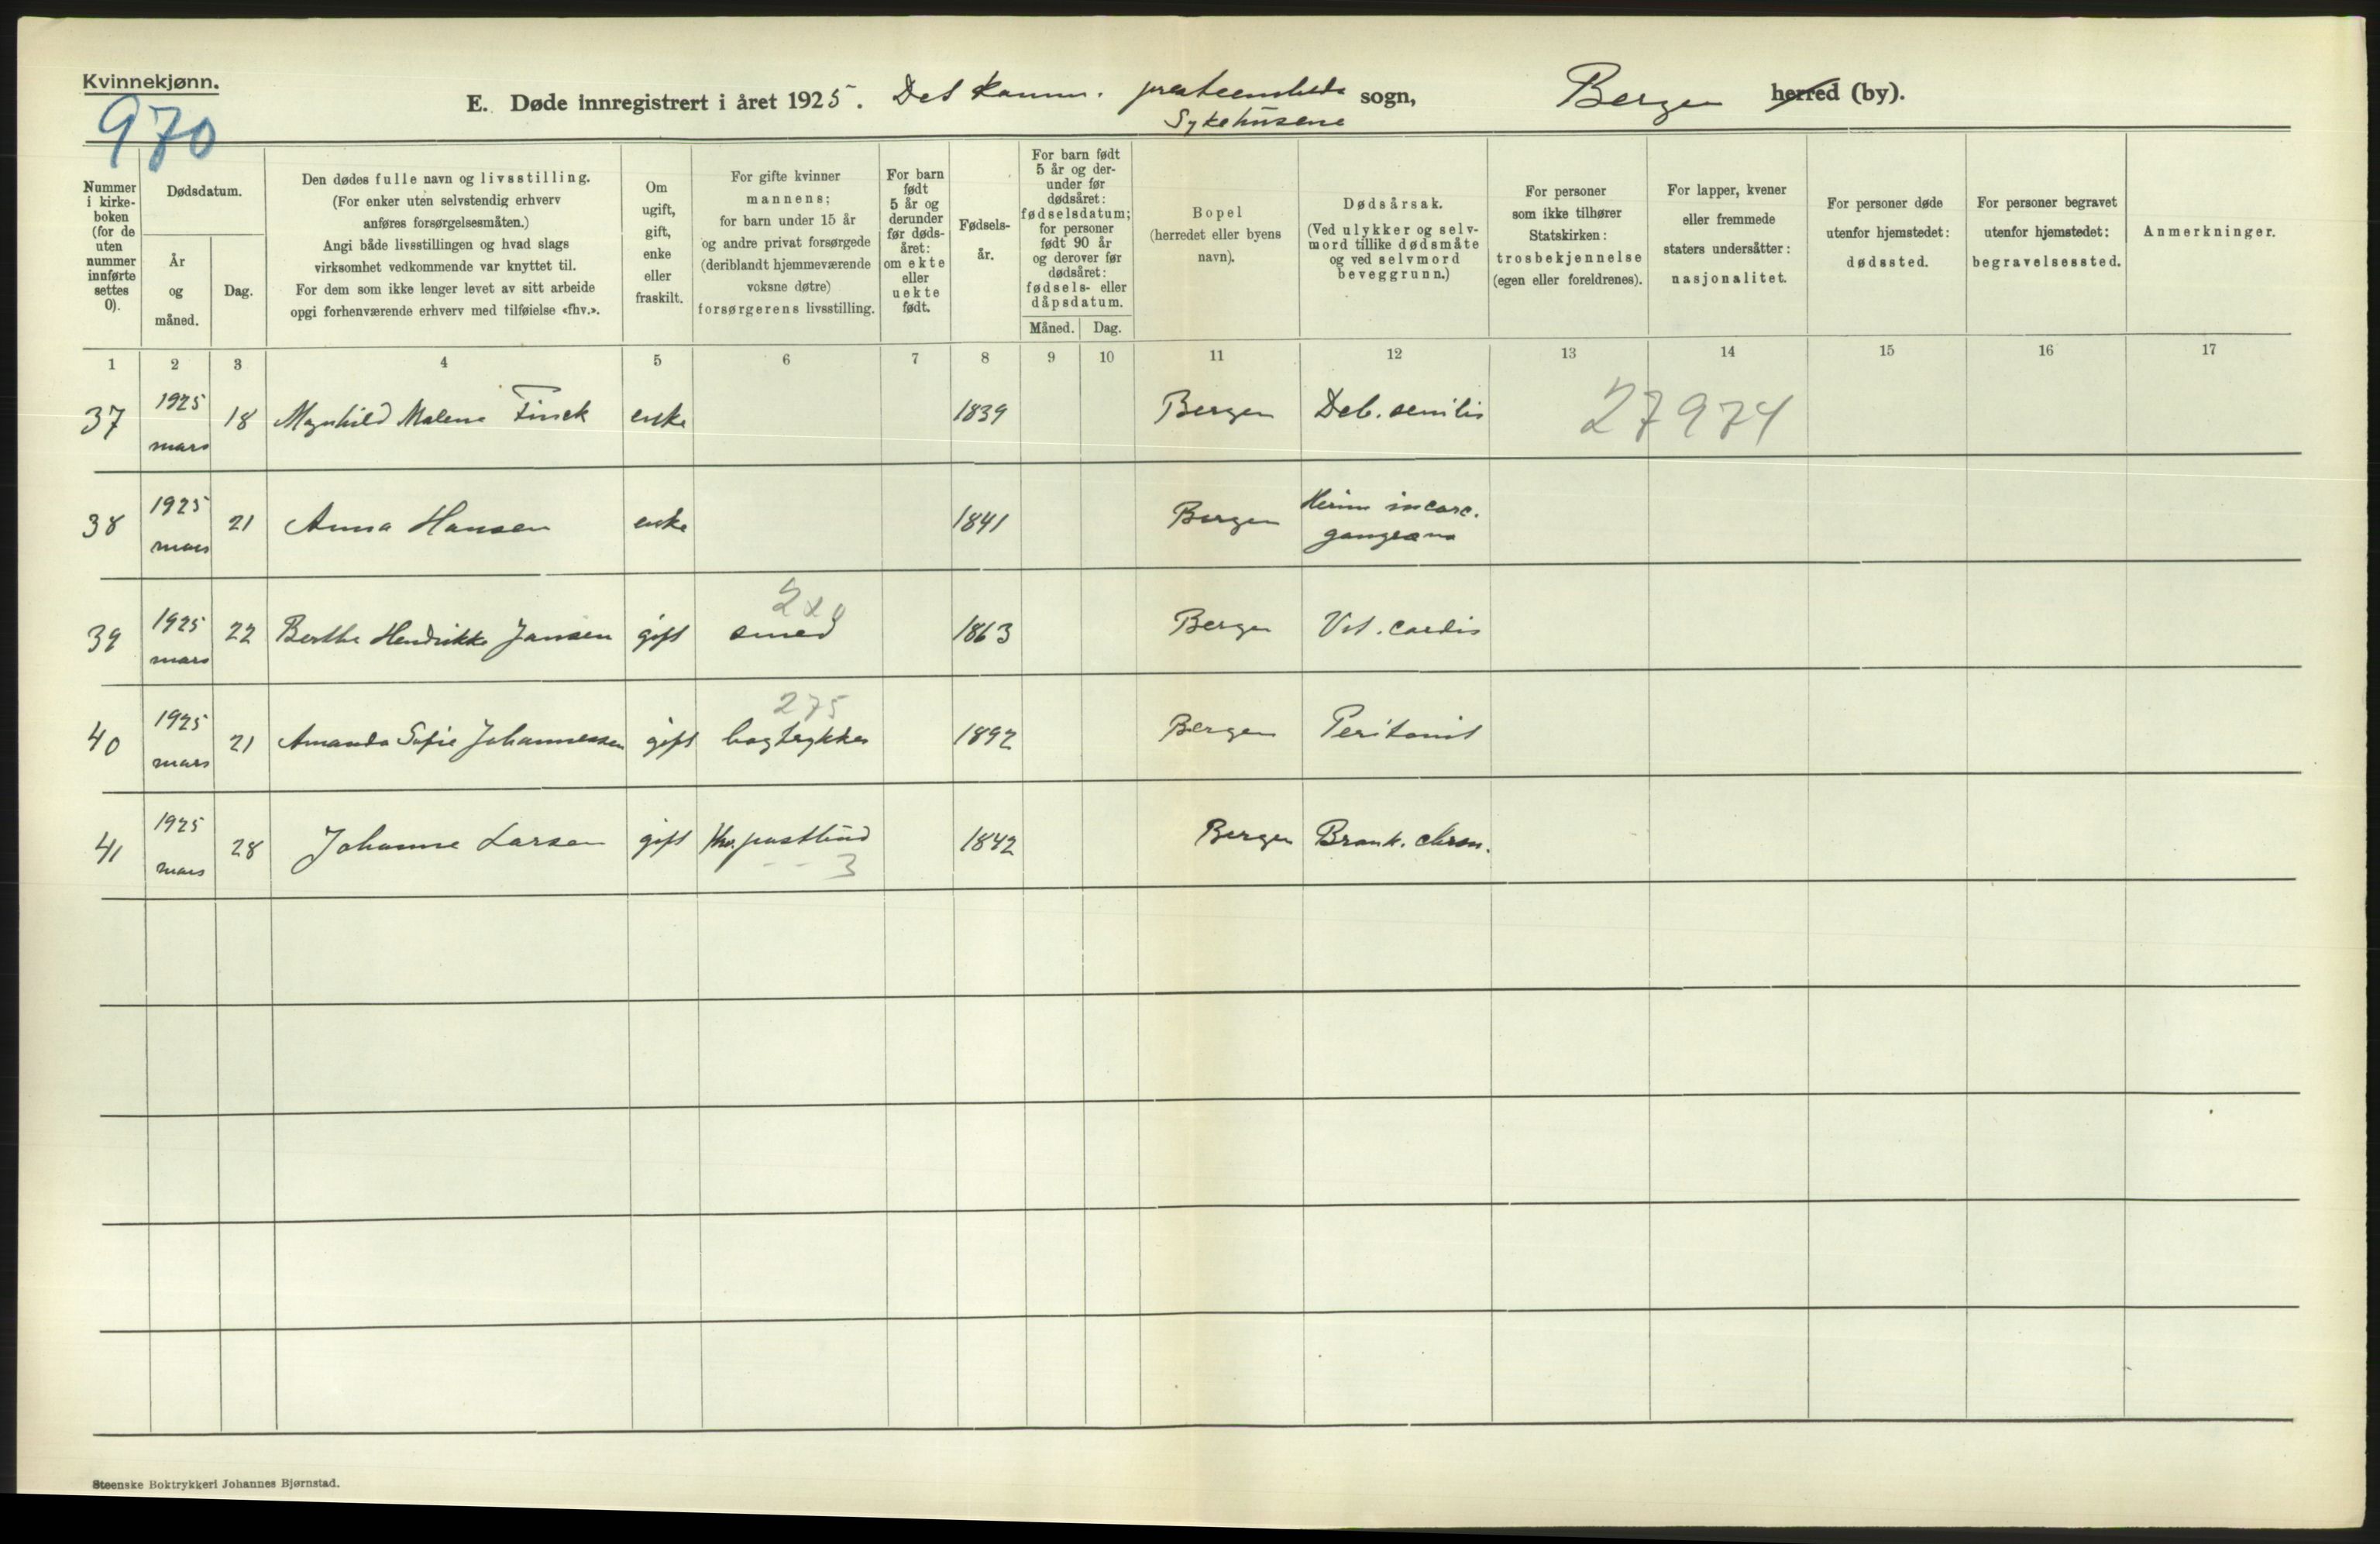 Kvinnekjønn.
970
E. Døde innregistrert i året 1925. Det komm. presteembede sogn, Bergen herred (by).
Sykehusene
Nummer i kirke-boken (for de uten nummer innførte settes 0).
Dødsdatum.
År og måned.
Dag.
Den dødes fulle navn og livsstilling.
(For enker uten selvstendig erhverv
anføres forsørgelsesmåten.)
Angi både livsstillingen og hvad slags
virksomhet vedkommende var knyttet til.
For dem som ikke lenger levet av sitt arbeide
opgi forhenværende erhverv med tilføielse «fhv.».
Om
ugift,
gift,
enke
eller
fraskilt.
For gifte kvinner
mannens;
for barn under 15 år
og andre privat forsørgede
(deriblandt hjemmeværende
voksne døtre)
forsørgerens livsstilling.
For barn
født
5 år og
derunder
før døds-
året:
om ekte
eller
uekte
født.
Fødsels-
år.
For barn født
5 år og der-
under før
dødsåret:
fødselsdatum;
for personer
født 90 år
og derover før
dødsåret:
fødsels- eller
dåpsdatum.
Måned. Dag.
Bopel
(herredet eller byens
navn).
Dødsårsak.
(Ved ulykker og selv-
mord tillike dødsmåte
og ved selvmord
beveggrunn.)
For personer
som ikke tilhører
Statskirken:
trosbekjennelse
(egen eller foreldrenes).
For lapper, kvener
eller fremmede
staters undersåtter:
nasjonalitet.
For personer døde
utenfor hjemstedet:
dødssted.
For personer begravet
utenfor hjemstedet:
begravelsessted.
Anmerkninger.
1 2 3 4 5 6 7 8 9 10 11 12 13 14 15 16 17
37 1925 mars 18 Magnhild Malene Finck enke 1839 Bergen Deb. senilis 27974
38 1925 mars 21 Anna Hansen enke 1841 Bergen Hernia incarc.
gangræna
39 1925 mars 22 Berthe Hendrikke Jansen gift smed 1863 Bergen Vit. cordis
275
40 1925 mars 21 Amanda Sofie Johannessen gift bogtrykker 1892 Bergen Peritonit
41 1925 mars 28 Johanne Larsen gift fhv. postbud 1842 Bergen Bronk. chron.
3
Steenske Boktrykkeri Johannes Bjørnstad.